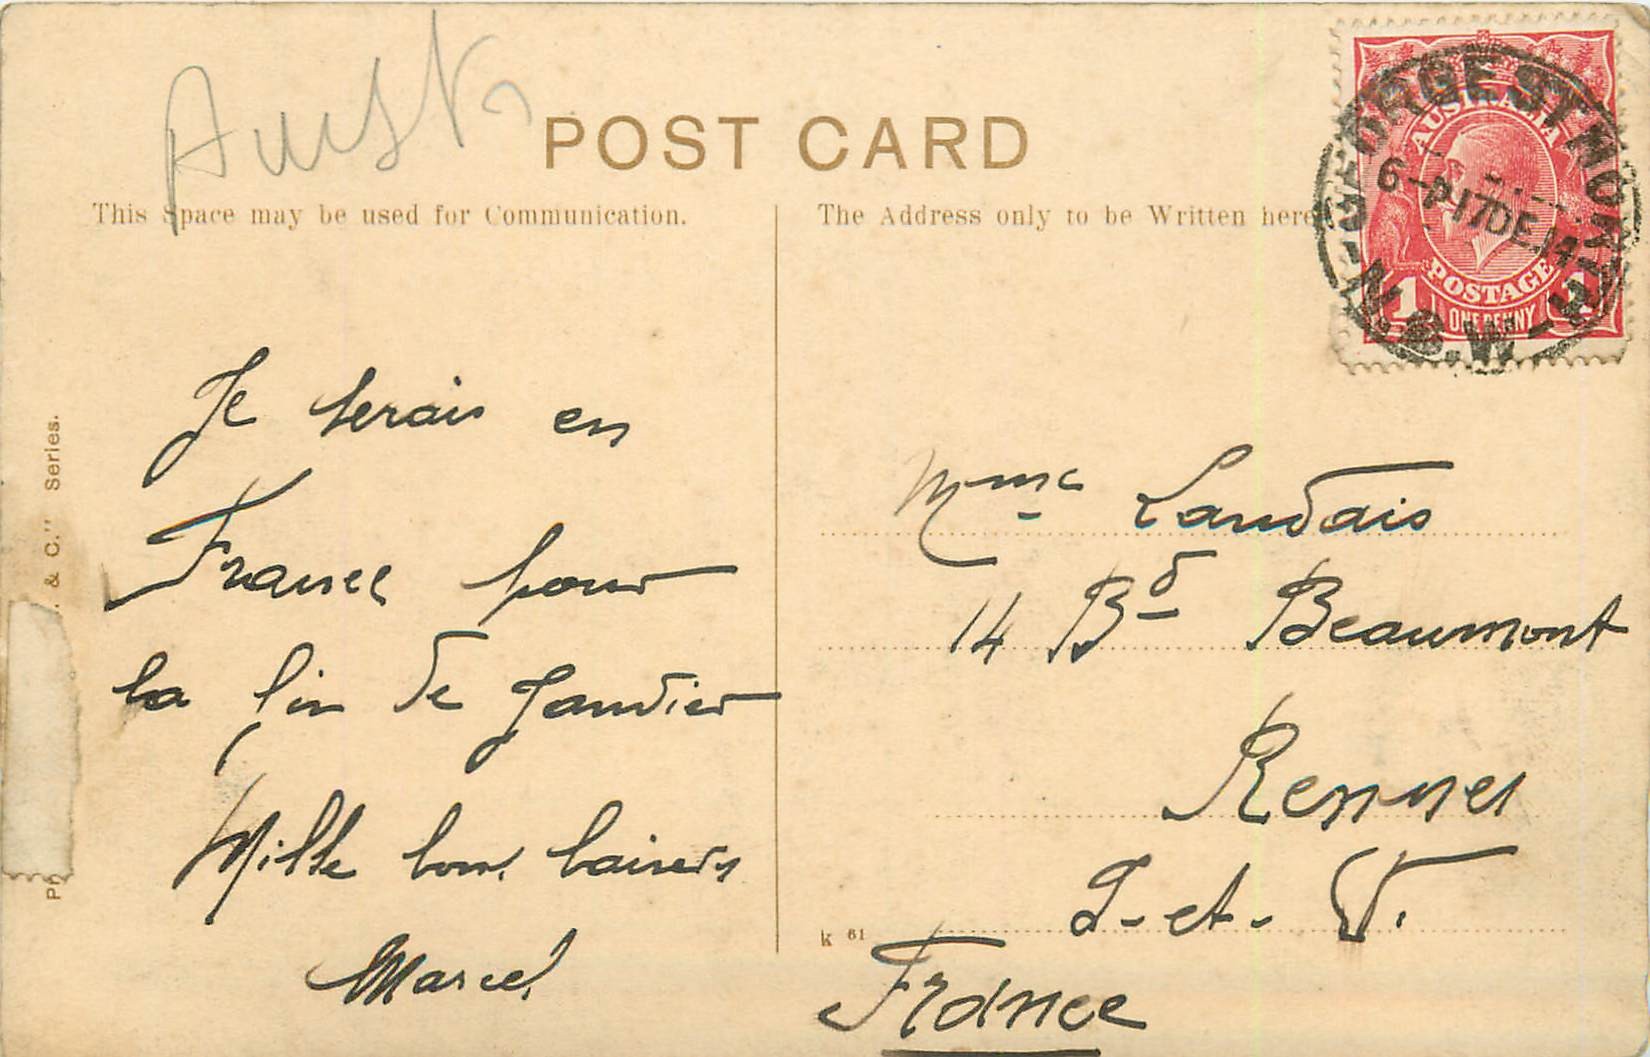 Aust
POST CARD
This Space may be used for Communication.
The Address only to be Written here
GEORGE ST NORTH
6-P 17 DE 14
N.S.W
AUSTRALIA
POSTAGE
1 ONE PENNY 1
Je serais en
France pour
la fin de Janvier
Mille bons baisers
Marcel
Mme Landais
14 Bd Beaumont
Rennes
I-et-V.
France
k 61
& C." Series.